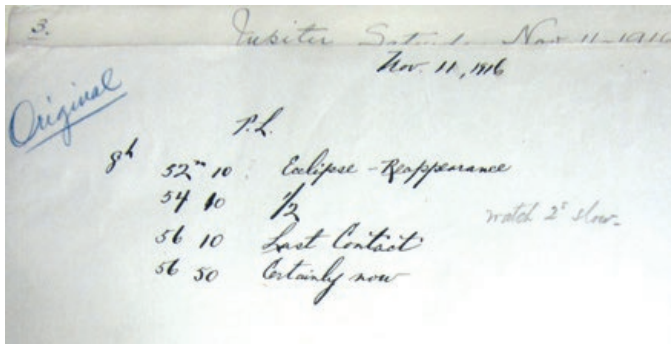 3. Jupiter Saturd. Nov 11-1916
Nov. 11, 1916
Original
P.L.
8h 52m 10 Eclipse - Reappearance
54 10 1/2
watch 2s slow-
56 10 Last Contact
56 50 Certainly now